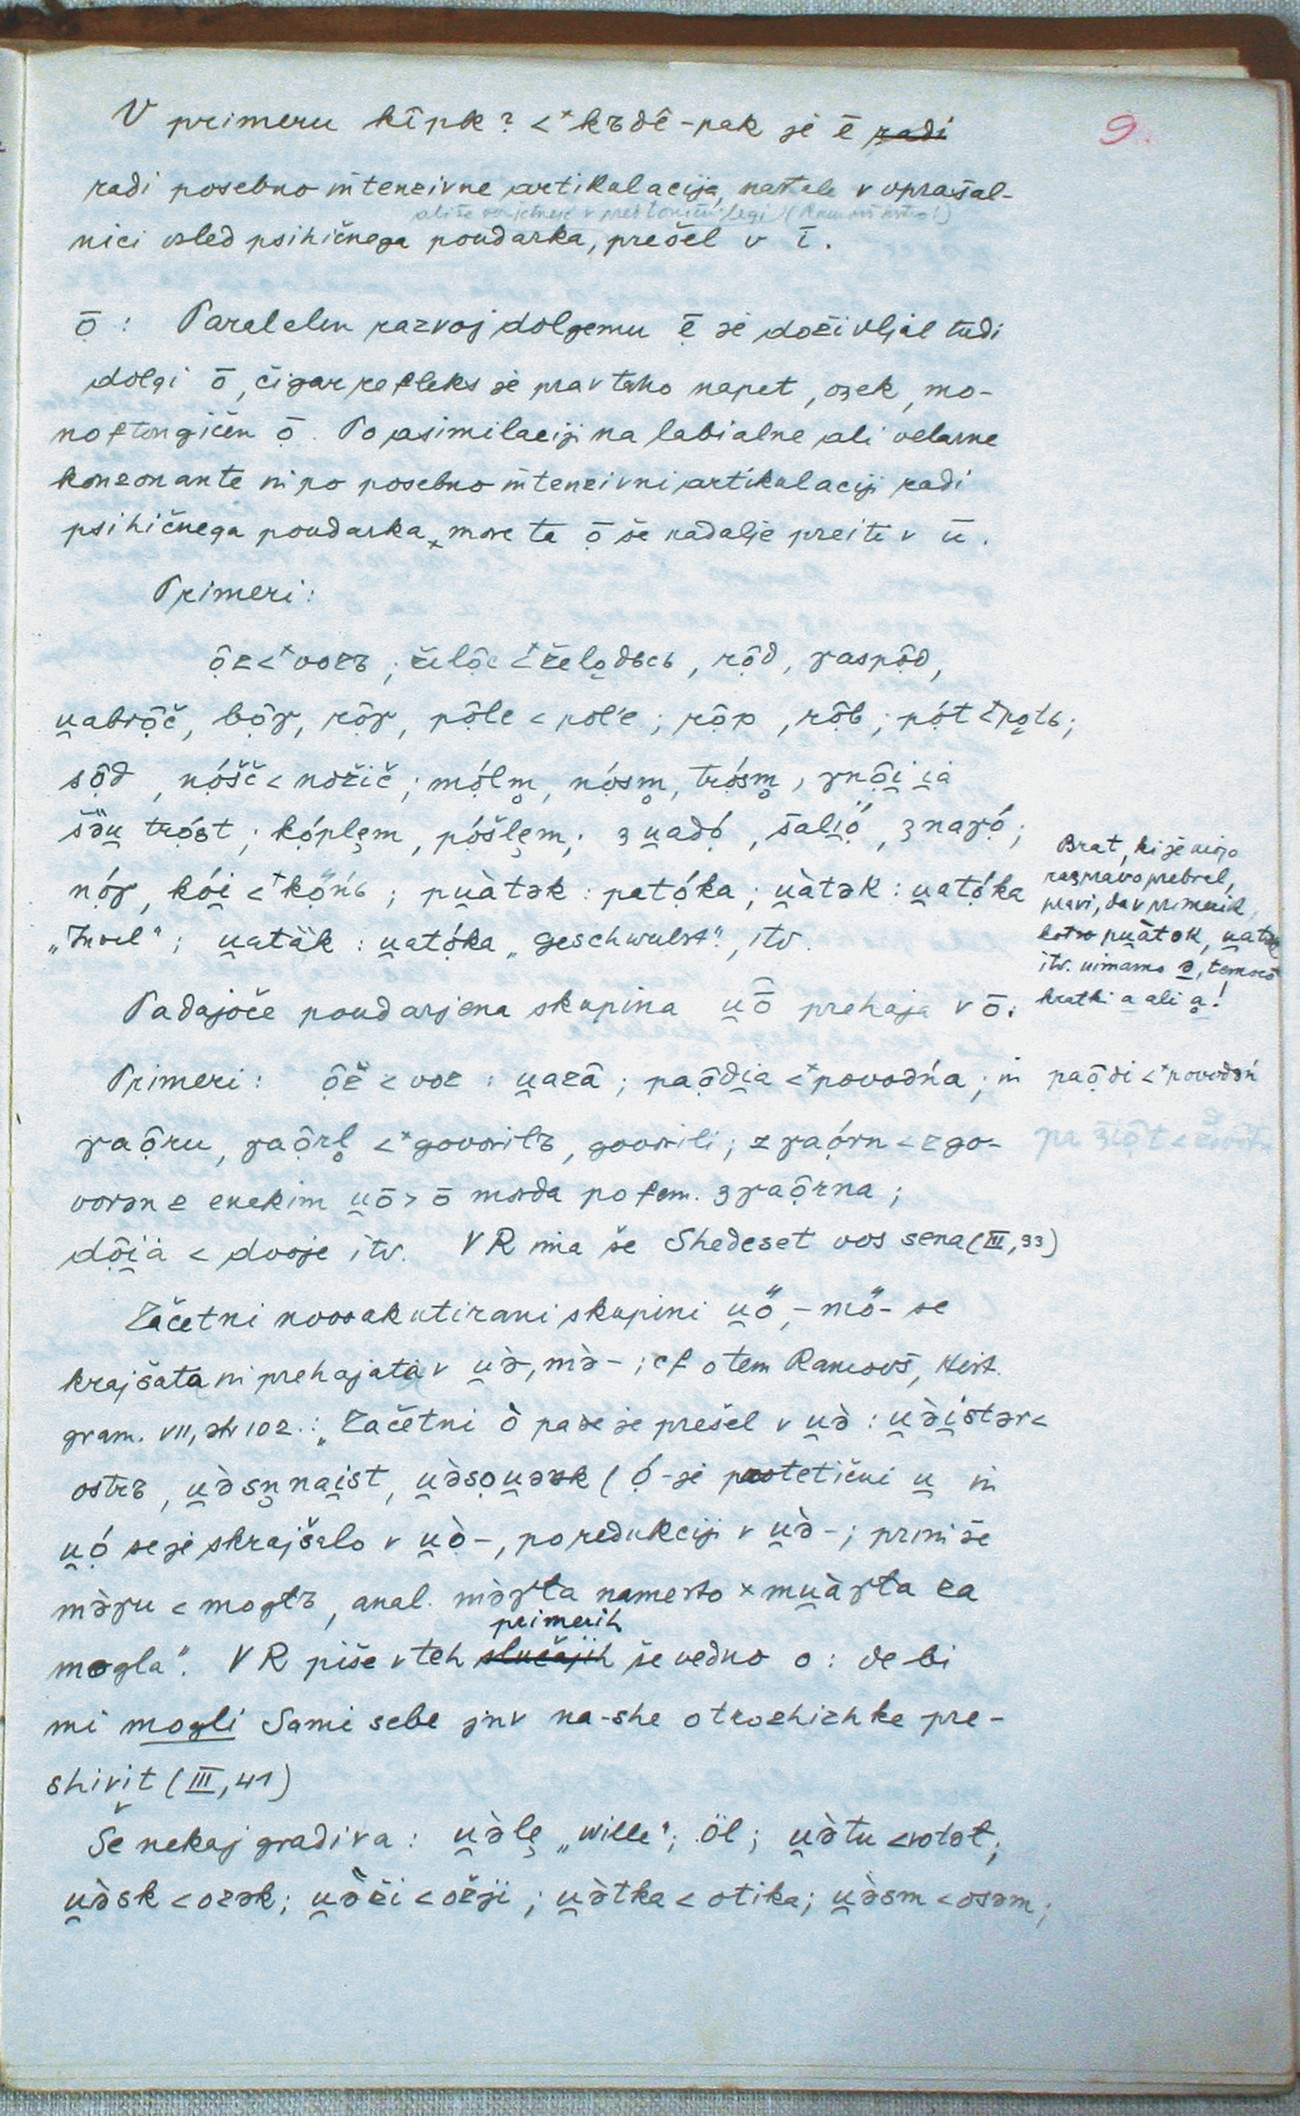 9.
V primeru kîpk? <*kъdê-pak je ē radi
radi posebno intenzivne artikulacije, nastale v uprašal-
ali še verjetneje v predtonični legi (Ramovš ustno!)
nici vsled psihičnega poudarka, prešel v ī.
ō: Paralelen razvoj dolgemu ē je doživljal tudi
dolgi ō, čigar refleks je prav tako napet, ozek, mo-
noftongičen ọ̄. Po asimilaciji na labialne ali velarne
konzonante in po posebno intenzivni artikulaciji radi
psihičnega poudarka, more ta ọ̄ še nadalje preiti v ū.
Primeri:
ọ̑z<*vozъ; žilọ̑c <*želǫdьcь, rọ̑d, γaspọ̑d,
u̯abrọ̑č, bọ̑γ, rọ̑γ, pọ̑le < poľe; pọ̑p, rọ̑b; pọ́t <*pǫtь;
sọ̑d, nọ́šč < nožič; mọ́lm̥, nọ́sm̥, trọ́sm̥, γnọ̑i̯ i̯ȧ
šə̏u̯ trọ́st; kọ́plẹm, pọ́šlẹm; zu̯adọ́, šali̯ọ̋, znaγọ́;
nọ́γ, kọ́i̯ <*kőńь; pu̯àtək : patọ́ka; u̯àtək : u̯atọ́ka
„Insel“; u̯atȁk : u̯atọ́ka „geschwulst“, itv.
Brat, ki je mojo
razpravo prebral,
pravi, da v primerih
kotso pu̯àtək, u̯atək
itv. nimamo ə, temveč
kratki a ali ḁ!
Padajoče poudarjena skupina u̯ō̑ prehaja v ō.
Primeri: ọ̑ž < voz : u̯azȃ; paọ̑di̯a <*povodńa; in paọ̑di <*povodəń
γaọ̑ru, γaọ̑rl̥ <*govorilъ, govorili; zγaọ́rn < zgo-
voren z enakim u̯ō > ō morda po fem. zγaọ̑rna;
dọ̑i̯ȧ < dvoje itv. V R ima še Shedeset vos sena (III, 93)
Začetni novoakutirani skupini u̯ő-, mő- se
krajšata in prehajata v u̯ə̀-, mə̀-; cf o tem Ramovš, Hist.
gram. VII, str 102.: „Začetni ò pa se je prešel v u̯ə̀ : u̯ə̀i̯stər <
ostrъ, u̯ə̀sn̥nai̯st, u̯ə̀sọu̯ərk (ọ́- je protetični u̯ in
u̯ọ́ se je skrajšalo v u̯ọ̀-, po redukciji v u̯ə̀-; prim še
mə̀γu < moglъ, anal. mə̀γla namesto ×mu̯àγla za
primerih
mogla“. V R piše v teh slučajih še vedno o: de bi
mi mogli Sami sebe jnv na-she otrozhizhke pre-
shivit (III, 41)
Še nekaj gradiva: u̯ə̀lẹ „wille“; öl; u̯ə̀tu < votəl;
u̯ə̀sk < ozək; u̯ə̏ži < ožji; u̯ə̀tka < otika; u̯ə̀sm < osəm;